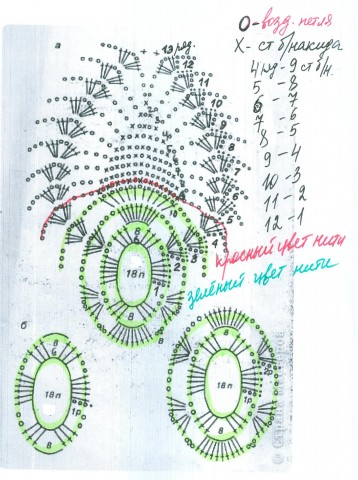 О - возд. петля
Х - ст б/накида
4 ряд - 9 ст б/н.
5 - 8
6 - 7
7 - 6
8 - 5
9 - 4
10 - 3
11 - 2
12 - 1
красный цвет нити
зелёный цвет нити
а
13 ряд.
12
11
10
9
8
7
6
5
4
10
8
18п
1
2
3
8
б
8
6
18п
1р
8
8
18п
1р
2р
8